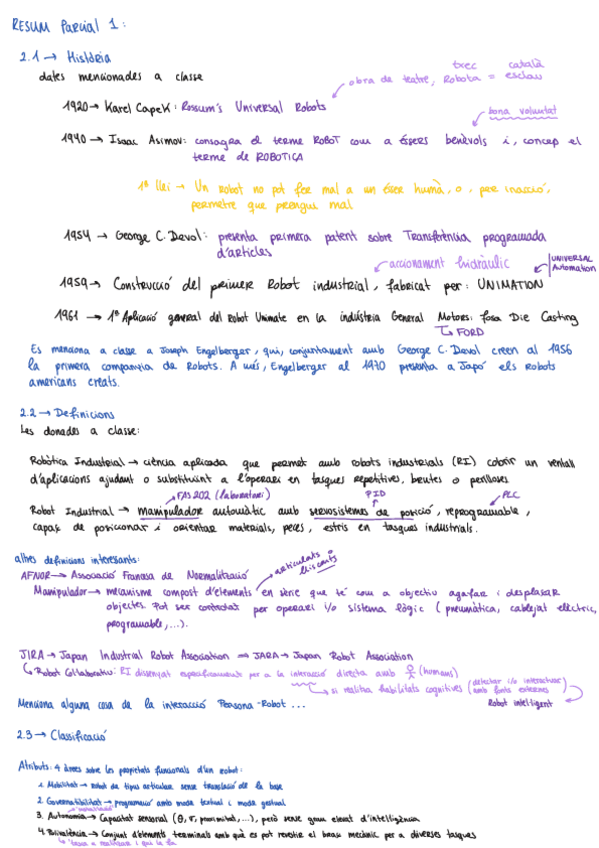 RESUM Parcial 1:
2.1 → Història
txec català
dates mencionades a classe
obra de teatre, Robota = esclau
1920 → Karel Capek: Rossum's Universal Robots
bona voluntat
1940 → Isaac Asimov: consagra el terme ROBOT com a éssers benèvols i, concep el
terme de ROBOTICA
1ª llei → Un robot no pot fer mal a un ésser humà, o, per inacció,
permetre que prengui mal
1954 → George C. Devol: presenta primera patent sobre Transferència programada
d'articles
accionament hidràulic
UNIVERSAL
Automation
1959 → Construcció del primer Robot industrial, fabricat per: UNIMATION
1961 → 1ª Aplicació general del Robot Unimate en la indústria General Motors: fosa Die Casting
FORD
Es menciona a classe a Joseph Engelberger, qui, conjuntament amb George C. Devol creen al 1956
la primera companyia de Robots. A més, Engelberger al 1970 presenta a Japó els Robots
americans creats.
2.2 → Definicions
Les donades a classe:
Robòtica Industrial → ciència aplicada que permet amb robots industrials (RI) cobrir un ventall
d'aplicacions ajudant o substituint a l'operari en tasques repetitives, brutes o perilloses
FAS 202 (laboratori) PID PLC
Robot Industrial → manipulador automàtic amb servosistemes de posició, reprogramable,
capaç de posicionar i orientar materials, peces, estris en tasques industrials.
altres definicions interessants:
articulats
lliscants
AFNOR → Associació Francesa de Normalització
Manipulador → mecanisme compost d'elements en sèrie que té com a objectiu agafar i desplaçar
objectes. Pot ser controlat per operari i/o sistema lògic (pneumàtica, cablejat elèctric,
programable,...).
JIRA → Japan Industrial Robot Association ⇒ JARA → Japan Robot Association
Robot Col·laboratiu: RI dissenyat específicament per a la interacció directa amb (humans)
si realitza habilitats cognitives (detectar i/o interactuar
amb fonts externes)
Robot intel·ligent
Menciona alguna cosa de la interacció Persona-Robot ...
2.3 → Classificació
Atributs: 4 àrees sobre les propietats funcionals d'un robot:
1. Mobilitat → Robot de tipus articular sense translació de la base
2. Governabilitat → programació amb mode textual i mode gestual
3. Autonomia → Capacitat sensorial (θ, r, proximitat,...), però sense gran elevat d'intel·ligència
4. Polivalència → Conjunt d'elements terminals amb què es pot revestir el braç mecànic per a diverses tasques